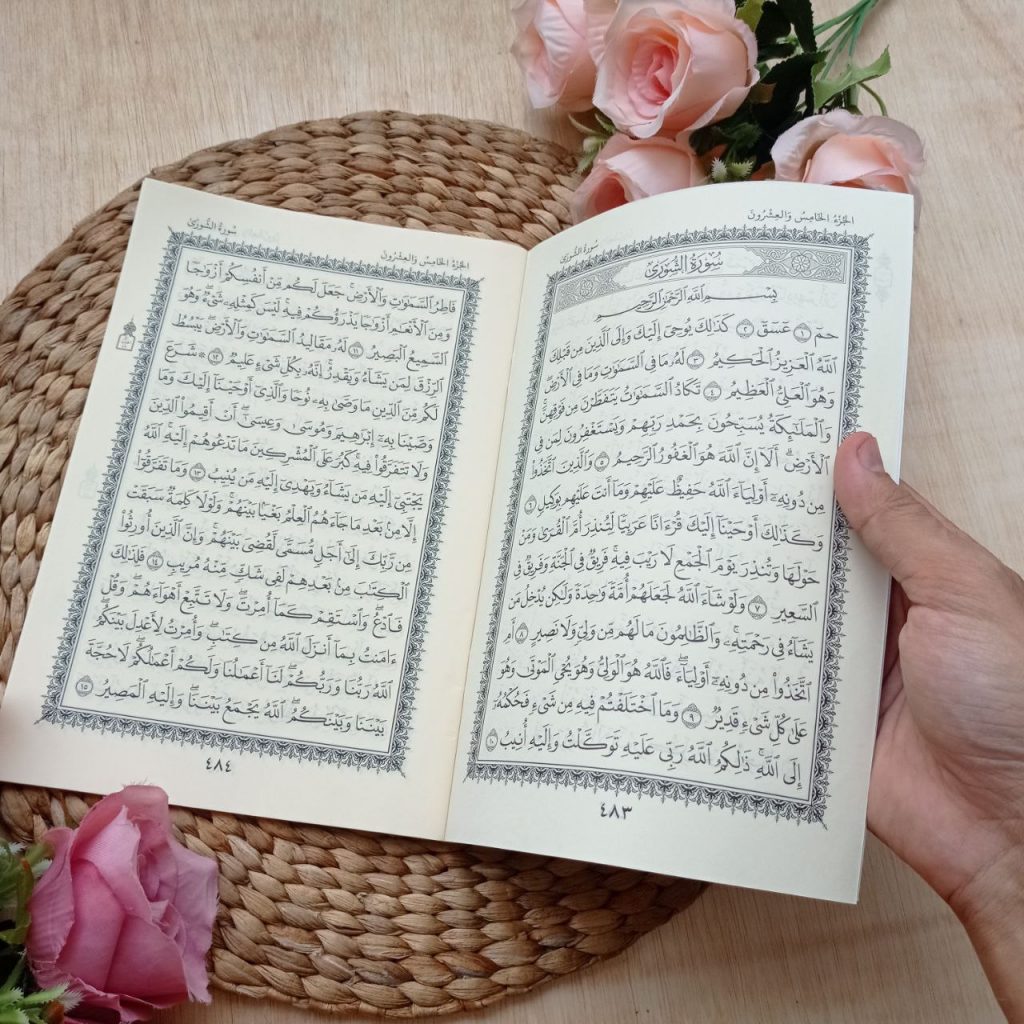 الجُزْءُ الخَامِسُ وَالعِشْرُونَ
سُورَةُ الشُّورَىٰ
سُورَةُ الشُّورَىٰ
بِسْمِ ٱللَّهِ ٱلرَّحْمَٰنِ ٱلرَّحِيمِ
حمٓ ١ عٓسٓقٓ ٢ كَذَٰلِكَ يُوحِىٓ إِلَيْكَ وَإِلَى ٱلَّذِينَ مِن قَبْلِكَ
ٱللَّهُ ٱلْعَزِيزُ ٱلْحَكِيمُ ٣ لَهُۥ مَا فِى ٱلسَّمَٰوَٰتِ وَمَا فِى ٱلْأَرْضِۖ
وَهُوَ ٱلْعَلِىُّ ٱلْعَظِيمُ ٤ تَكَادُ ٱلسَّمَٰوَٰتُ يَتَفَطَّرْنَ مِن فَوْقِهِنَّۚ
وَٱلْمَلَٰٓئِكَةُ يُسَبِّحُونَ بِحَمْدِ رَبِّهِمْ وَيَسْتَغْفِرُونَ لِمَن فِى
ٱلْأَرْضِۗ أَلَآ إِنَّ ٱللَّهَ هُوَ ٱلْغَفُورُ ٱلرَّحِيمُ ٥ وَٱلَّذِينَ ٱتَّخَذُوا۟
مِن دُونِهِۦٓ أَوْلِيَآءَ ٱللَّهُ حَفِيظٌ عَلَيْهِمْ وَمَآ أَنتَ عَلَيْهِم بِوَكِيلٍ ٦
وَكَذَٰلِكَ أَوْحَيْنَآ إِلَيْكَ قُرْءَانًا عَرَبِيًّا لِّتُنذِرَ أُمَّ ٱلْقُرَىٰ وَمَنْ
حَوْلَهَا وَتُنذِرَ يَوْمَ ٱلْجَمْعِ لَا رَيْبَ فِيهِۚ فَرِيقٌ فِى ٱلْجَنَّةِ وَفَرِيقٌ فِى
ٱلسَّعِيرِ ٧ وَلَوْ شَآءَ ٱللَّهُ لَجَعَلَهُمْ أُمَّةً وَٰحِدَةً وَلَٰكِن يُدْخِلُ مَن
يَشَآءُ فِى رَحْمَتِهِۦۚ وَٱلظَّٰلِمُونَ مَا لَهُم مِّن وَلِىٍّ وَلَا نَصِيرٍ ٨ أَمِ
ٱتَّخَذُوا۟ مِن دُونِهِۦٓ أَوْلِيَآءَۖ فَٱللَّهُ هُوَ ٱلْوَلِىُّ وَهُوَ يُحْىِ ٱلْمَوْتَىٰ وَهُوَ
عَلَىٰ كُلِّ شَىْءٍ قَدِيرٌ ٩ وَمَا ٱخْتَلَفْتُمْ فِيهِ مِن شَىْءٍ فَحُكْمُهُۥٓ
إِلَى ٱللَّهِۚ ذَٰلِكُمُ ٱللَّهُ رَبِّى عَلَيْهِ تَوَكَّلْتُ وَإِلَيْهِ أُنِيبُ ١٠
٤٨٣
الجُزْءُ الخَامِسُ وَالعِشْرُونَ
سُورَةُ الشُّورَىٰ
فَاطِرُ ٱلسَّمَٰوَٰتِ وَٱلْأَرْضِۚ جَعَلَ لَكُم مِّنْ أَنفُسِكُمْ أَزْوَٰجًا
وَمِنَ ٱلْأَنْعَٰمِ أَزْوَٰجًا يَذْرَؤُكُمْ فِيهِۚ لَيْسَ كَمِثْلِهِۦ شَىْءٌۖ وَهُوَ
ٱلسَّمِيعُ ٱلْبَصِيرُ ١١ لَهُۥ مَقَالِيدُ ٱلسَّمَٰوَٰتِ وَٱلْأَرْضِۖ يَبْسُطُ
ٱلرِّزْقَ لِمَن يَشَآءُ وَيَقْدِرُۚ إِنَّهُۥ بِكُلِّ شَىْءٍ عَلِيمٌ ١٢ ۞ شَرَعَ
لَكُم مِّنَ ٱلدِّينِ مَا وَصَّىٰ بِهِۦ نُوحًا وَٱلَّذِىٓ أَوْحَيْنَآ إِلَيْكَ وَمَا
وَصَّيْنَا بِهِۦٓ إِبْرَٰهِيمَ وَمُوسَىٰ وَعِيسَىٰٓۖ أَنْ أَقِيمُوا۟ ٱلدِّينَ
وَلَا تَتَفَرَّقُوا۟ فِيهِۚ كَبُرَ عَلَى ٱلْمُشْرِكِينَ مَا تَدْعُوهُمْ إِلَيْهِۚ ٱللَّهُ
يَجْتَبِىٓ إِلَيْهِ مَن يَشَآءُ وَيَهْدِىٓ إِلَيْهِ مَن يُنِيبُ ١٣ وَمَا تَفَرَّقُوٓا۟
إِلَّا مِنۢ بَعْدِ مَا جَآءَهُمُ ٱلْعِلْمُ بَغْيًۢا بَيْنَهُمْۚ وَلَوْلَا كَلِمَةٌ سَبَقَتْ
مِن رَّبِّكَ إِلَىٰٓ أَجَلٍ مُّسَمًّى لَّقُضِىَ بَيْنَهُمْۚ وَإِنَّ ٱلَّذِينَ أُورِثُوا۟
ٱلْكِتَٰبَ مِنۢ بَعْدِهِمْ لَفِى شَكٍّ مِّنْهُ مُرِيبٍ ١٤ فَلِذَٰلِكَ
فَٱدْعُۖ وَٱسْتَقِمْ كَمَآ أُمِرْتَۖ وَلَا تَتَّبِعْ أَهْوَآءَهُمْۖ وَقُلْ
ءَامَنتُ بِمَآ أَنزَلَ ٱللَّهُ مِن كِتَٰبٍۖ وَأُمِرْتُ لِأَعْدِلَ بَيْنَكُمُۖ
ٱللَّهُ رَبُّنَا وَرَبُّكُمْۖ لَنَآ أَعْمَٰلُنَا وَلَكُمْ أَعْمَٰلُكُمْۖ لَا حُجَّةَ
بَيْنَنَا وَبَيْنَكُمُۖ ٱللَّهُ يَجْمَعُ بَيْنَنَاۖ وَإِلَيْهِ ٱلْمَصِيرُ ١٥
٤٨٤